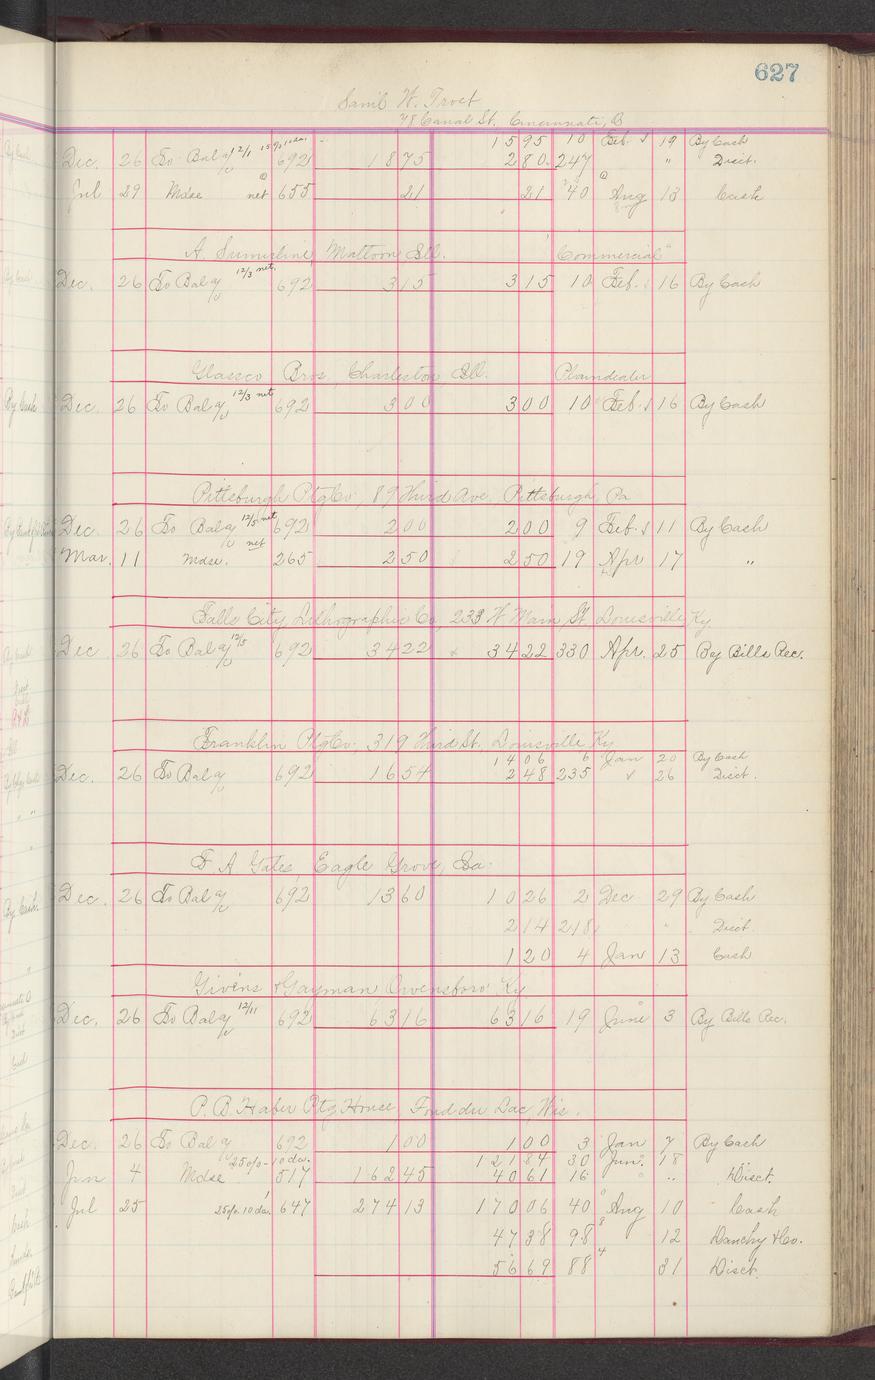 627
Saml W. Trost
78 Canal St. Cincinnati, O
1595 10 Feb. 19 By Cash
Dec. 26 To Bal a/c 12/1 15% 10 da. 692 1875 280 247 " Disct.
Jul 29 Mdse net 655 21 21 40 Aug 13 Cash
A. Sumerlin, Mattoon Ill. "Commercial"
Dec. 26 To Bal a/c 12/3 net. 692 315 315 10 Feb. 16 By Cash
Glassco Bros, Charleston Ill. Plaindealer
Dec. 26 To Bal a/c 12/3 net 692 300 300 10 Feb. 16 By Cash
Pittsburgh Ptg Co, 89 Third Ave, Pittsburgh, Pa
Dec. 26 To Bal a/c 12/5 net 692 200 200 9 Feb. 11 By Cash
Mar. 11 Mdse. net 265 250 250 19 Apr 17 "
Falls City Lithographic Co, 233 W Main St Louisville Ky
Dec 26 To Bal a/c 12/5 692 3422 3422 330 Apr. 25 By Bills Rec.
Franklin Ptg Co, 319 Third St. Louisville Ky
1406 6 Jan 20 By Cash
Dec. 26 To Bal a/c 692 1654 248 235 " 26 Disct.
F. A Gates, Eagle Grove, Ia.
Dec. 26 To Bal a/c 692 1360 1026 2 Dec 29 By Cash
214 218 " Disct.
120 4 Jan 13 Cash
Givens & Gayman Owensboro Ky
Dec. 26 To Bal a/c 12/11 692 6316 6316 19 June 3 By Bills Rec.
P. B. Haber Ptg House, Fond du Lac, Wis.
Dec. 26 To Bal a/c 692 100 100 3 Jan 7 By Cash
12184 30 Jun. 18
Jun 4 Mdse 25% 10 da. 517 16245 4061 16 " Disct.
Jul 25 25% 10 da. 647 27413 17006 40 Aug 10 Cash
4738 98 12 Danchy & Co.
5669 88 31 Disct.